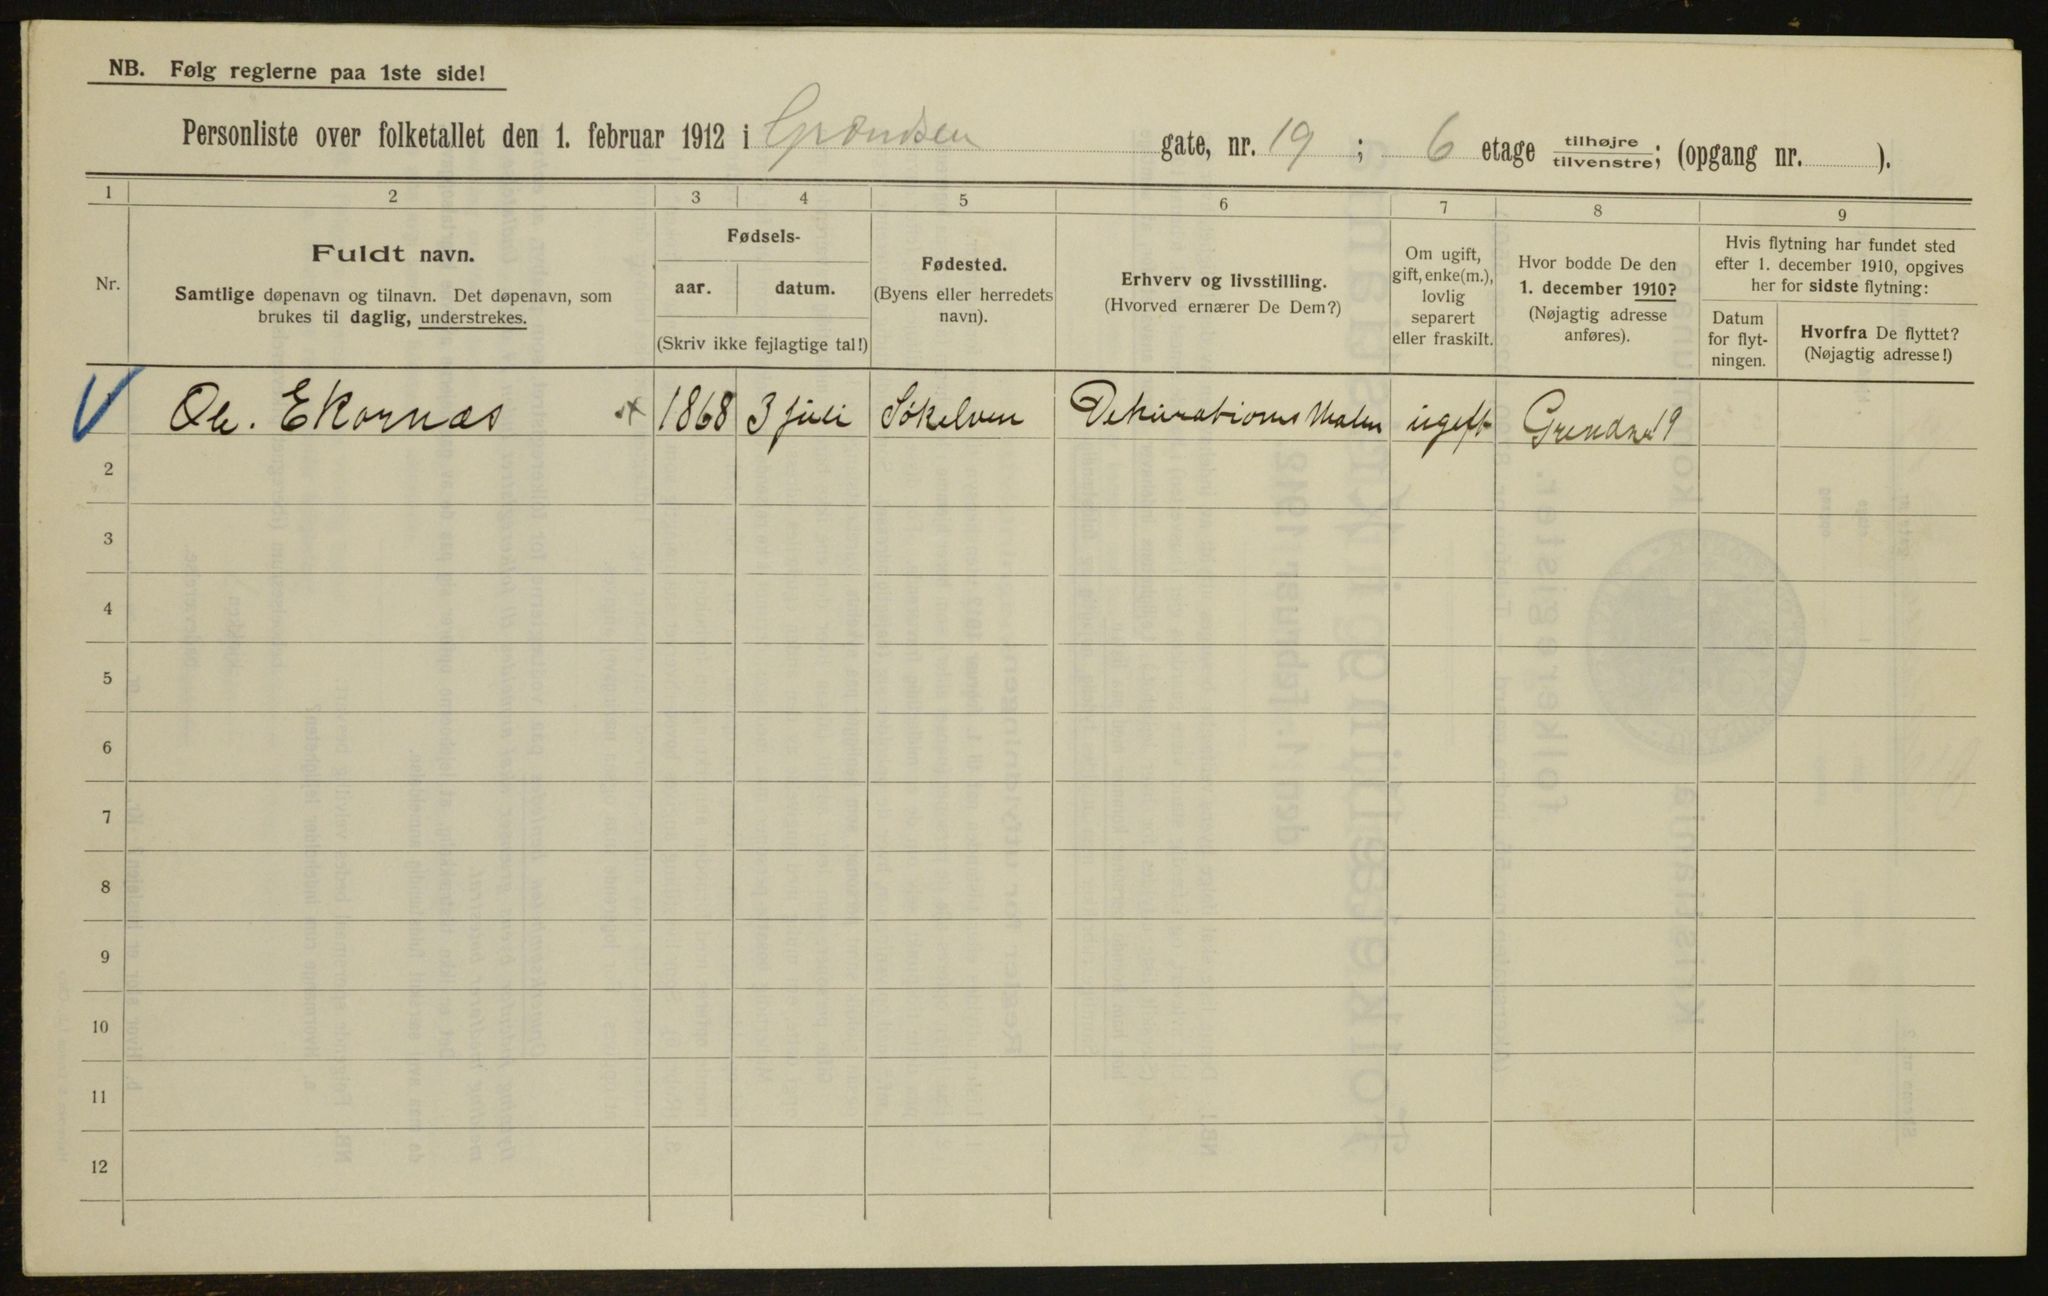 NB. Følg reglerne paa 1ste side!
Personliste over folketallet den 1. februar 1912 i Grændsen gate, nr. 19 ; 6 etage tilhøjre/tilvenstre; (opgang nr. ).
1 2 3 4 5 6 7 8 9
Nr.
Fuldt navn.
Samtlige døpenavn og tilnavn. Det døpenavn, som
brukes til daglig, understrekes.
Fødsels-
aar. datum.
(Skriv ikke fejlagtige tal!)
Fødested.
(Byens eller herredets
navn).
Erhverv og livsstilling.
(Hvorved ernærer De Dem?)
Om ugift,
gift, enke(m.),
lovlig
separert
eller fraskilt.
Hvor bodde De den
1. december 1910?
(Nøjagtig adresse
anføres).
Hvis flytning har fundet sted
efter 1. december 1910, opgives
her for sidste flytning:
Datum
for flyt-
ningen.
Hvorfra De flyttet?
(Nøjagtig adresse!)
Ole. Ekornæs 1868 3 juli Søkelven Dekurations Maler ugift 19
2
3
4
5
6
7
8
9
10
11
12